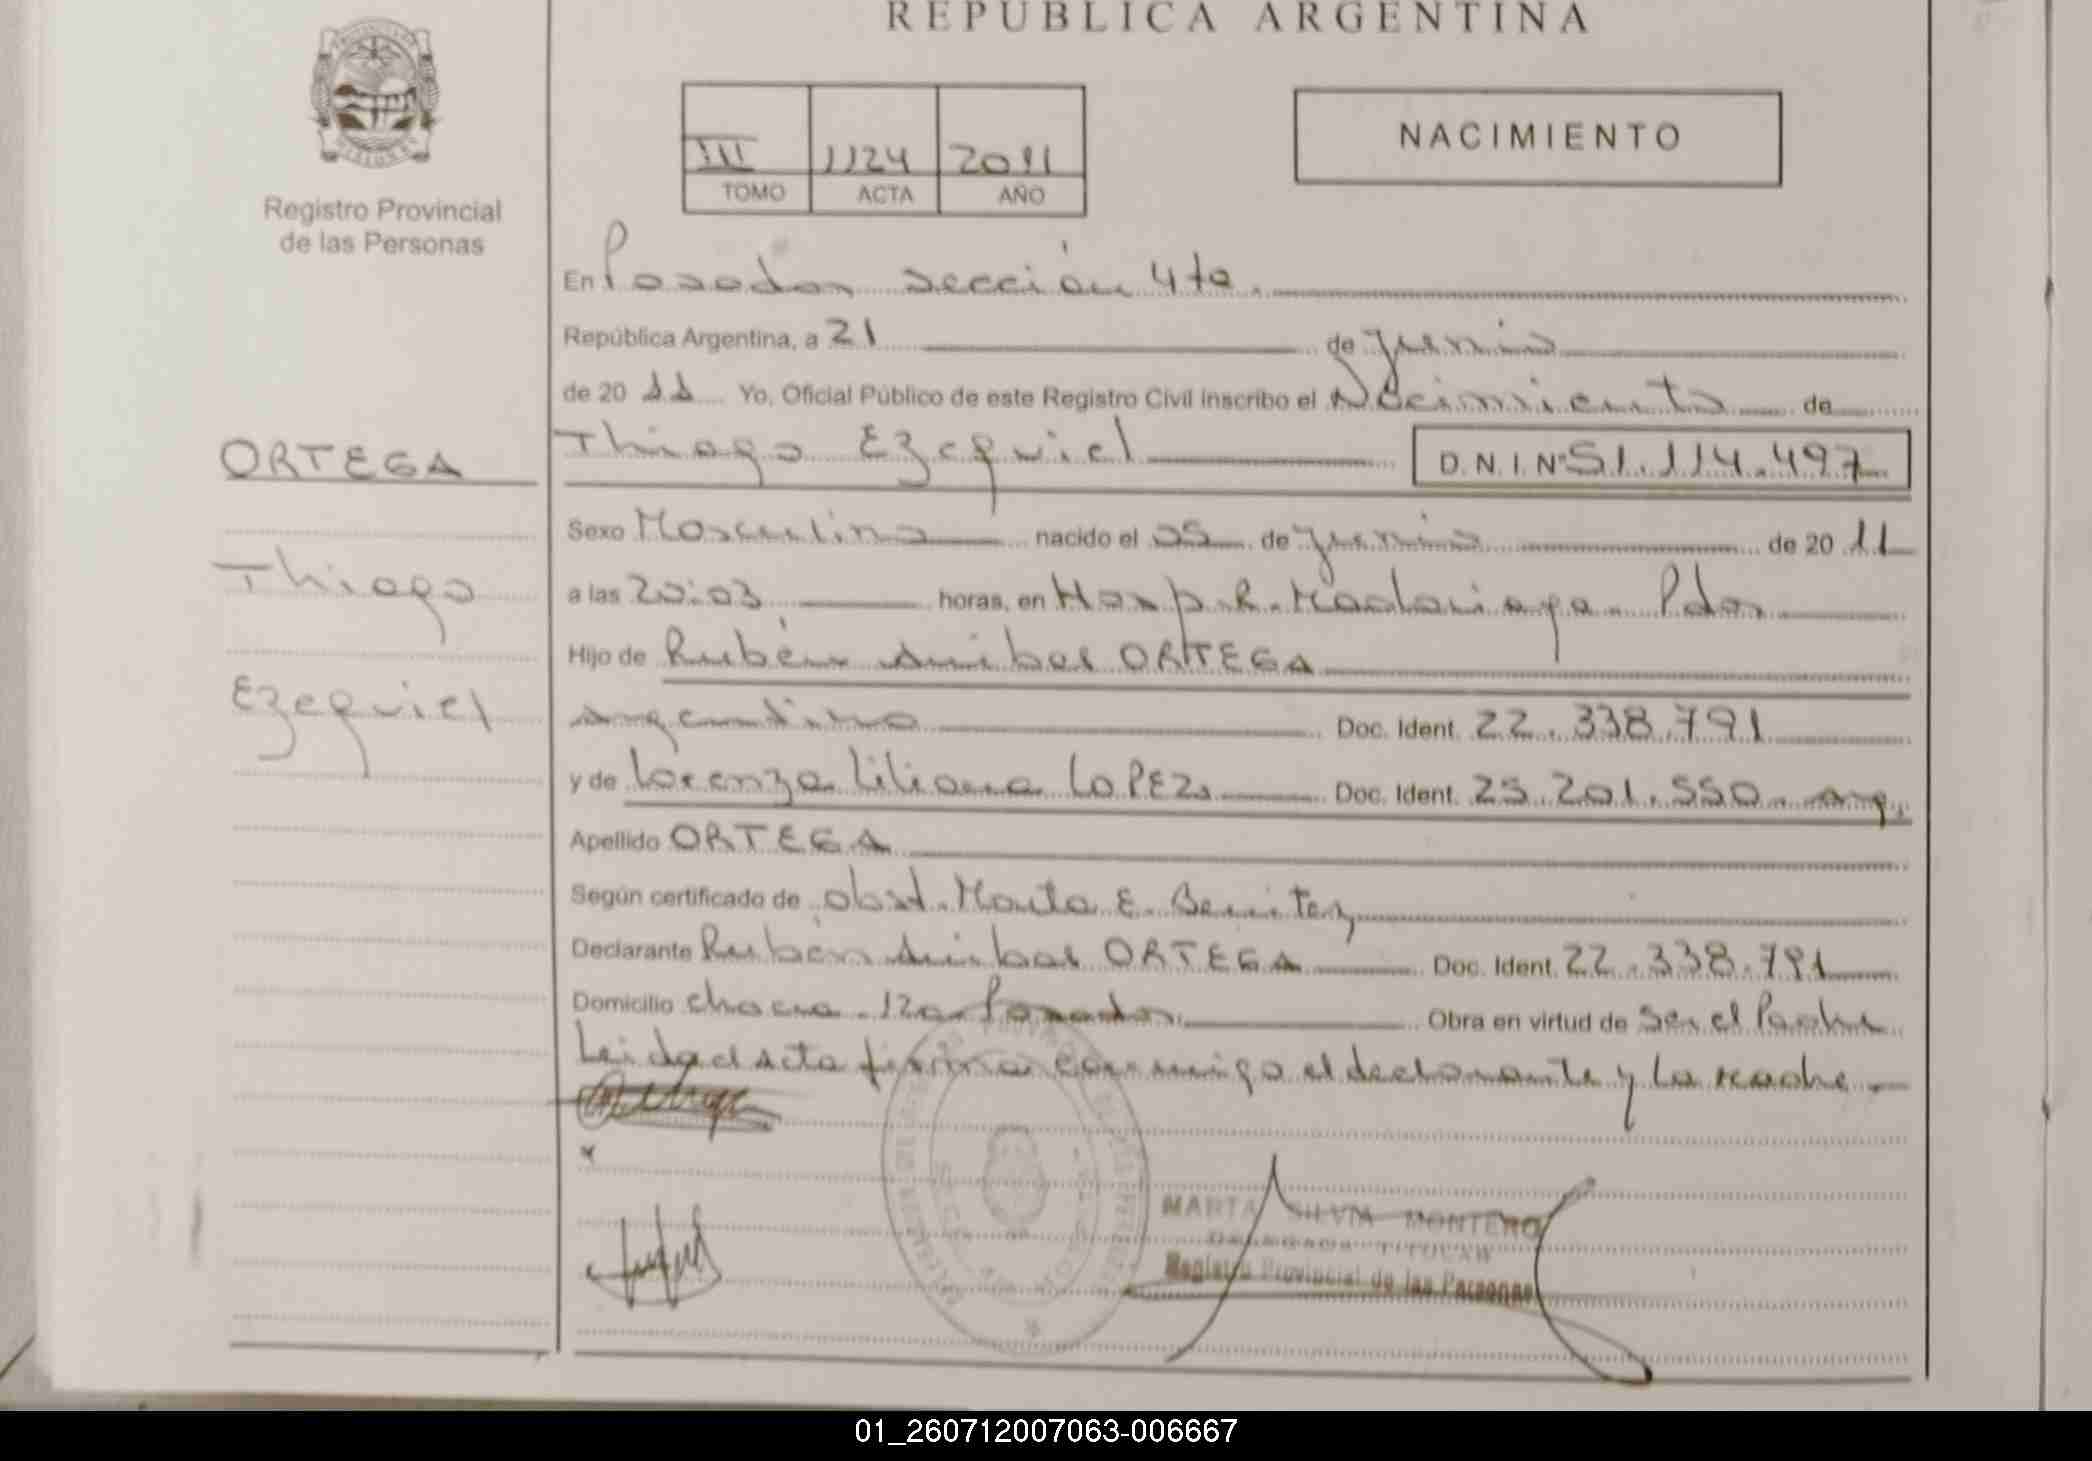 REPUBLICA ARGENTINA
Registro Provincial
de las Personas
III 1124 2011
TOMO ACTA AÑO
NACIMIENTO
En Posadas sección 4ta.
República Argentina, a 21 de Junio
de 20 11 Yo, Oficial Público de este Registro Civil inscribo el Nacimiento de
Thiago Ezequiel D.N.I.Nº 51.114.497
ORTEGA
Thiago
Ezequiel
Sexo Masculino nacido el 05 de Junio de 20 11
a las 20:03 horas, en Hosp. R. Madariaga. Pdas
Hijo de Rubén Anibal ORTEGA
argentino Doc. Ident. 22.338.791
y de Lorenza Liliana LOPEZ Doc. Ident. 25.201.550. arg.
Apellido ORTEGA
Según certificado de obst. Marta E. Benitez
Declarante Rubén Anibal ORTEGA Doc. Ident. 22.338.791
Domicilio chacra 120 Posadas Obra en virtud de Ser el Padre
Leida el acta firma conmigo el declarante y La Madre.
MARTA SILVIA MONTERO
DELEGADA TITULAR
Registro Provincial de las Personas
01_260712007063-006667